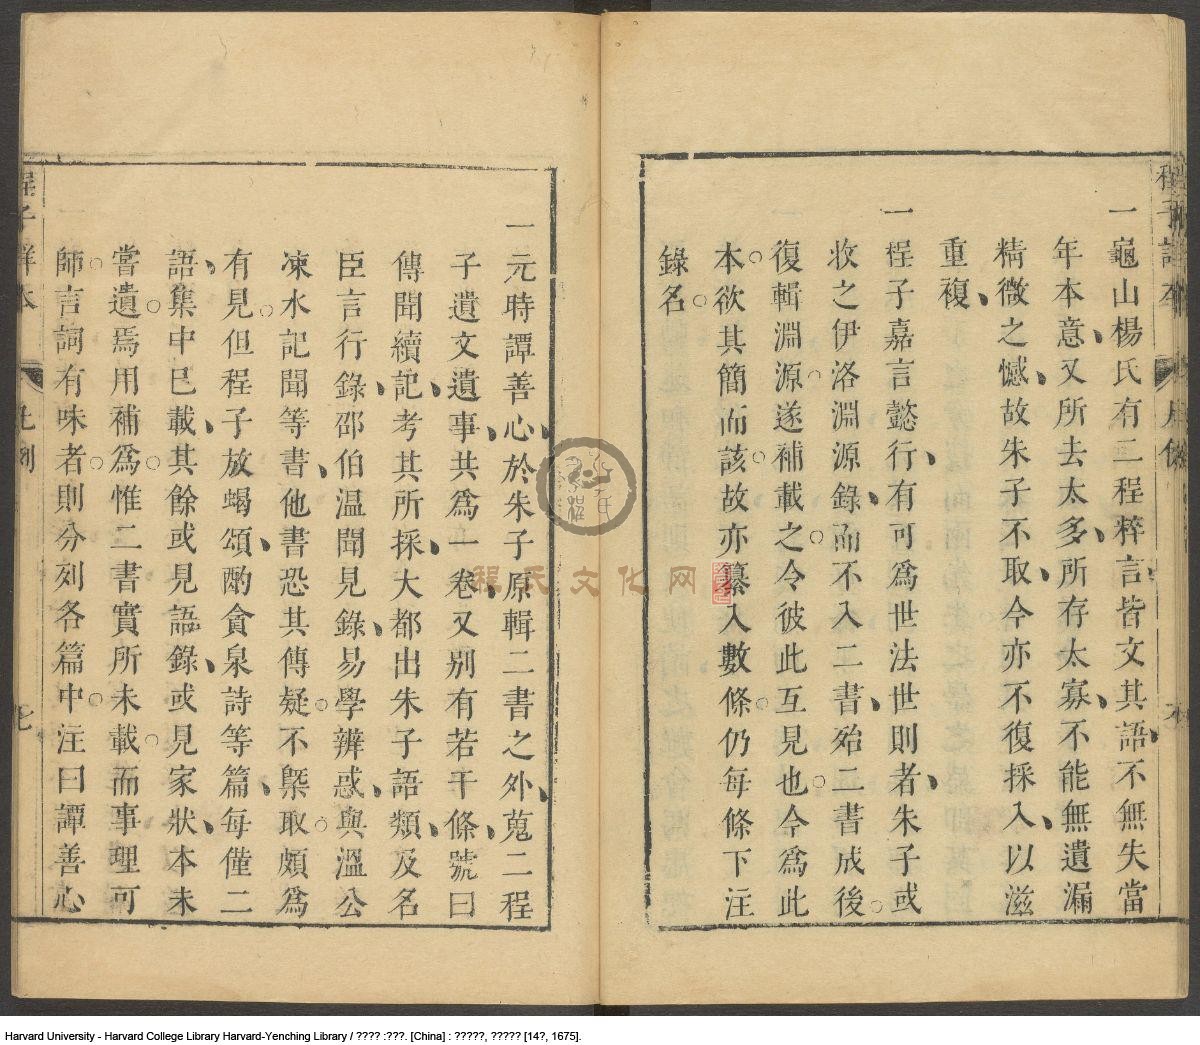 一龜山楊氏有二程粹言皆文其語不無失當
年本意又所去太多所存太寡不能無遺漏
精微之憾故朱子不取今亦不復採入以滋
重複
一程子嘉言懿行有可爲世法世則者朱子或
收之伊洛淵源錄而不入二書殆二書成後
復輯淵源遂補載之今彼此互見也今爲此
本欲其簡而該故亦纂入數條仍每條下注
錄名
一元時譚善心於朱子原輯二書之外蒐二程
子遺文遺事共爲一卷又別有若干條號曰
傳聞續記考其所採大都出朱子語類及名
臣言行錄邵伯溫聞見錄易學辨惑與溫公
凍水記聞等書他書恐其傳疑不槩取頗爲
有見但程子放蝎頌酌貪泉詩等篇每僅二
語集中巳載其餘或見語錄或見家狀本未
嘗遺焉用補爲惟二書實所未載而事理可
師言詞有味者則分列各篇中注曰譚善心
程氏文化网
Harvard University - Harvard College Library Harvard-Yenching Library / ???? :???. [China] : ?????, ????? [14?, 1675].